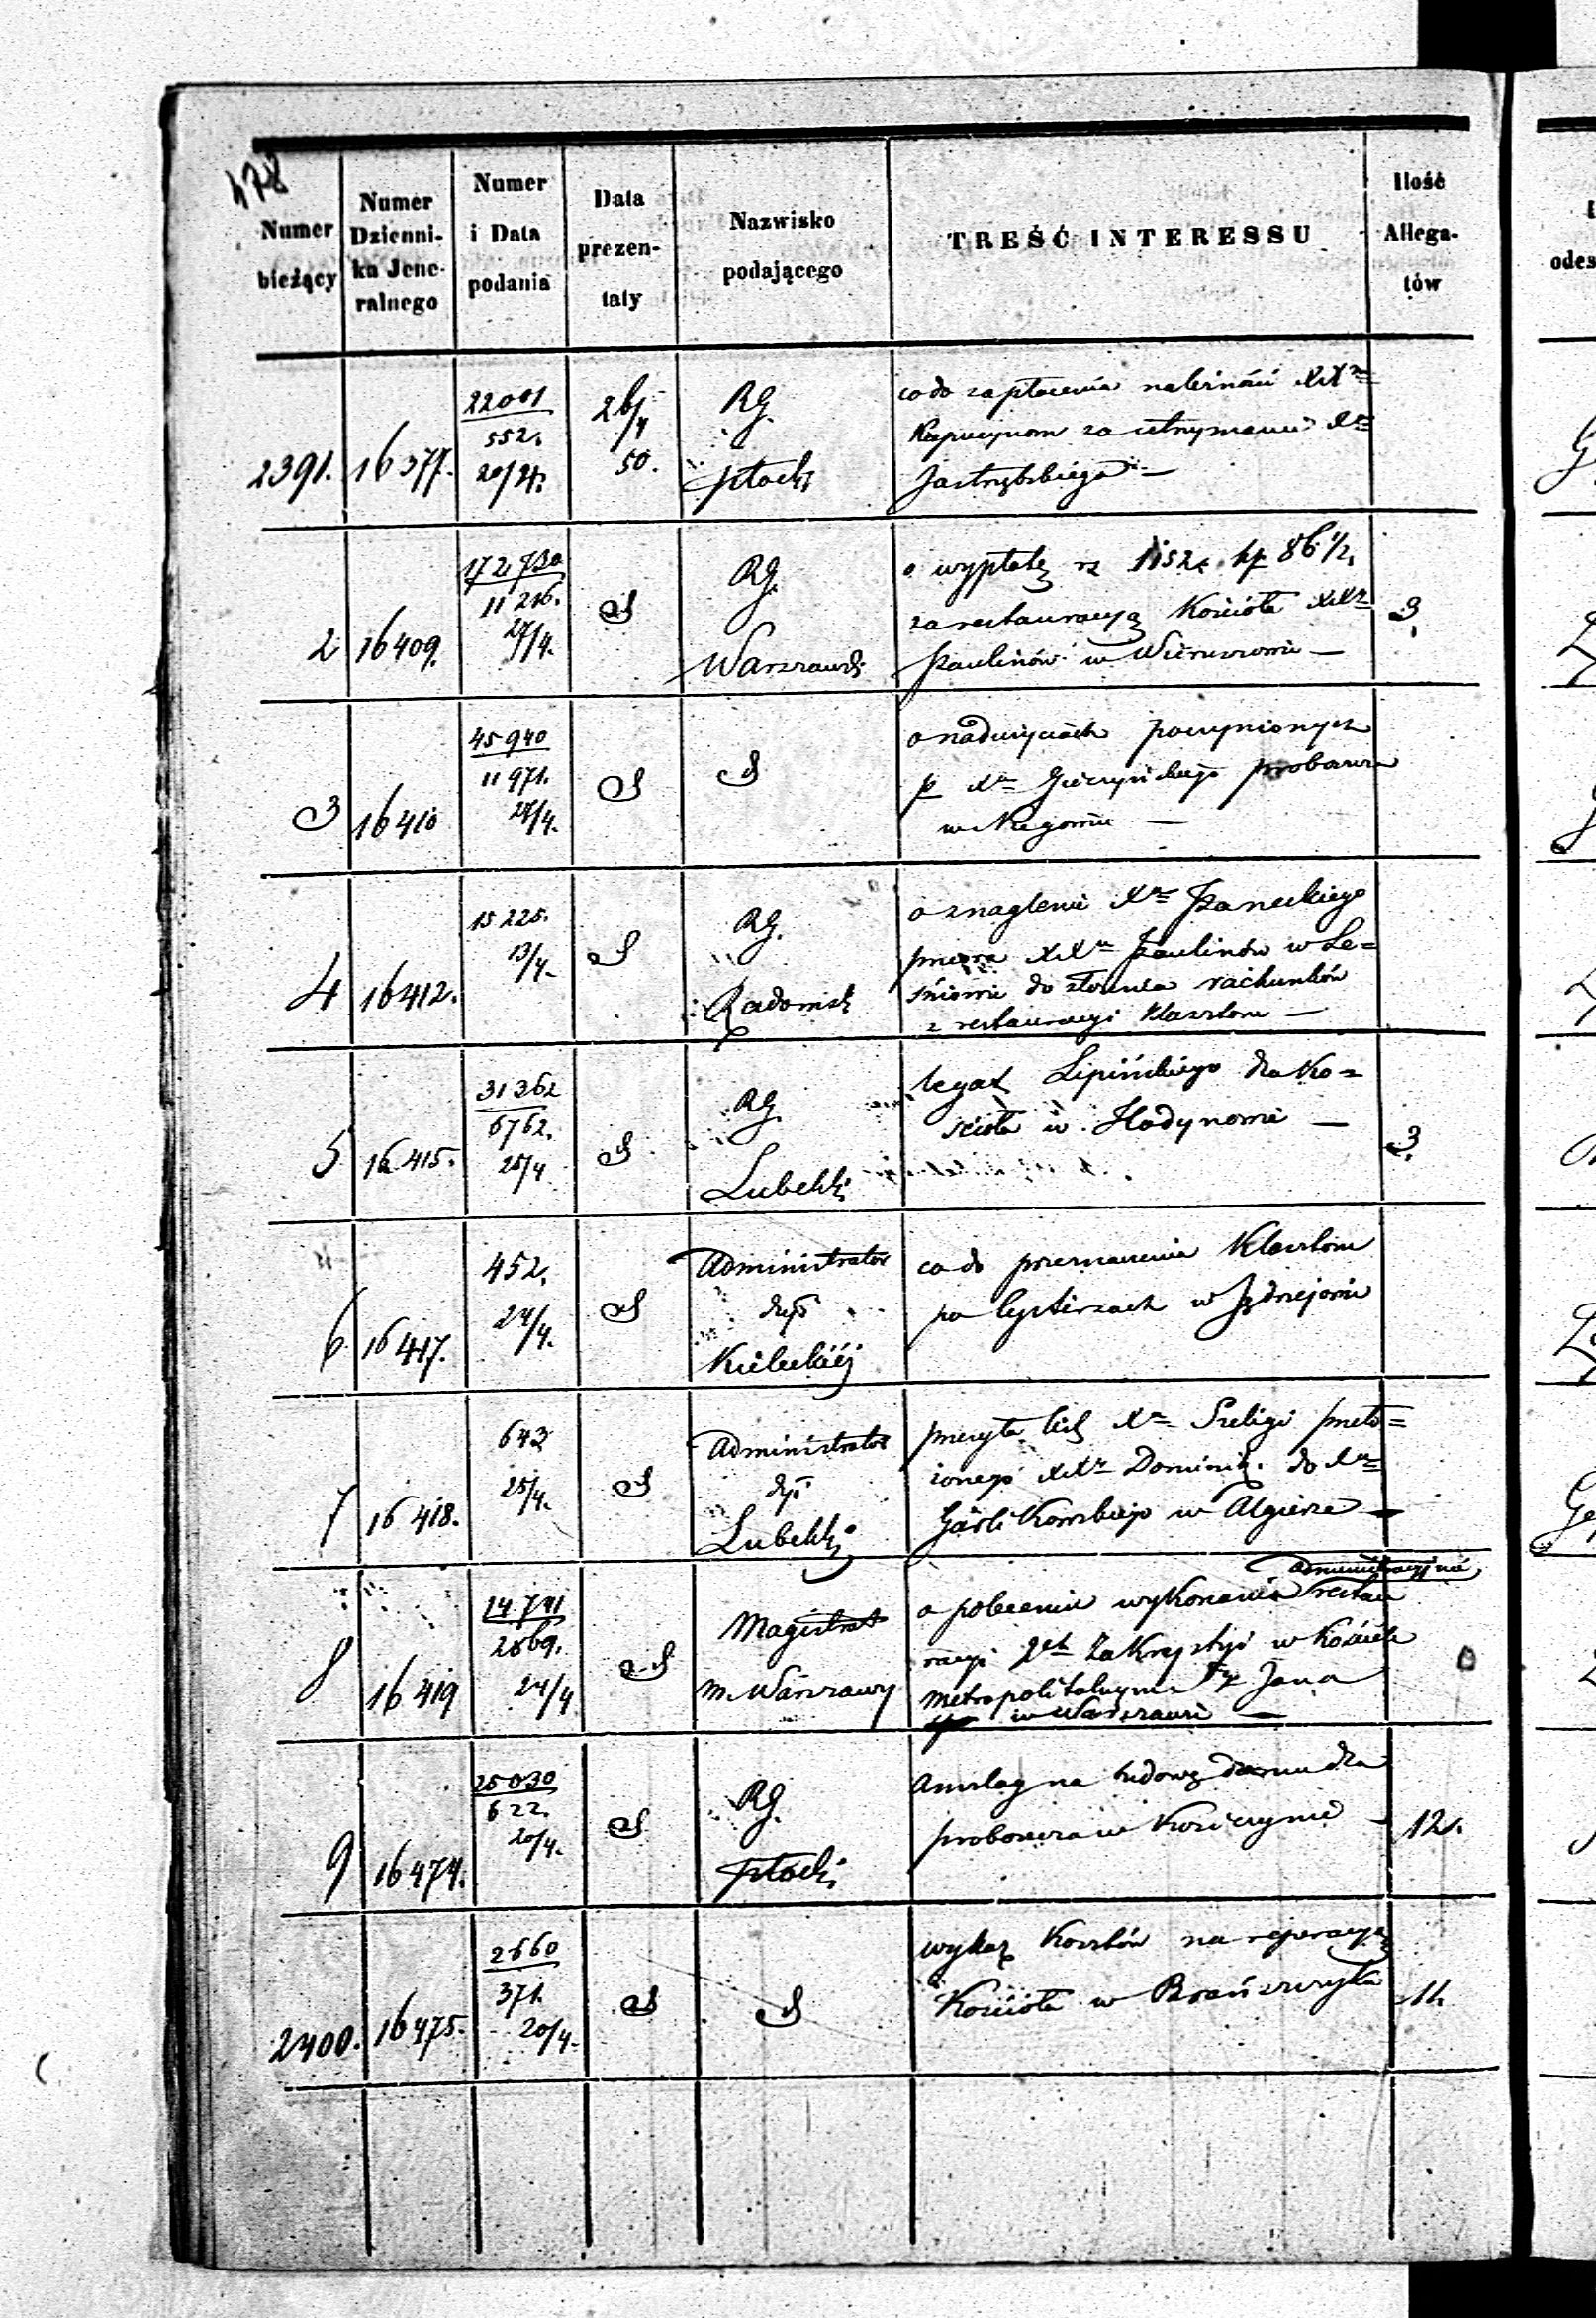 478
Numer bieżący
Numer Dzienni- ka Jene- ralnego
Numer i Data podania
Data prezen- taty
Nazwisko podającego
TREŚĆ INTERESSU
Ilość Allega- tów
2391.
16377.
22001
552.
20/4.
26/4
50.
RG.
Płocki
co do zapłacenia należności XX
Kapucynom za utrzymanie X
Jastrzębskiego —
2
16409.
172730
11216.
27/4.
S
RG.
Warszawski
o wypłatę rs 1152 kp 86 1/2
za restauracyą Kościoła XX
Paulinów w Wieruszowie —
3
3
16410
45940
11971.
27/4.
S
S
o nadużyciach poczynionych
p X proboszcza
w —
4
16412.
15225.
13/4.
S
RG.
Radomski
o znaglenie X
przeora XX Paulinów w Le=
śniowie do złożenia rachunków
z restauracyi Klasztoru —
5
16415.
31362
6762.
25/4
S
RG.
Lubelski
legat Lipińskiego dla Ko=
ścioła w Hadynowie —
3
6
16417.
452.
24/4.
S
Administrator
dyó
Kieleckiéj
co do przeznaczenia Klasztoru
po Cystersach w Jędrzejowie
7
16418.
643
25/4.
S
Administrator
dyó
Lubelski
przesyła list X Szeligi przeło=
żonego XX Dominik. do X
w Algierze —
8
16419
14741
2869.
24/4
S
Magistrat
m. Warszawy
administracyjné
o polecenie wykonania restau
racyi 2ch Zakrystyi w Kościele
Metropolitalnym Jana
w Warszawie —
9
16474.
25030
622.
20/4.
S
RG.
Płocki
Anszlag na budowę domu dla
proboszcza w
12.
2400.
16475.
2660
371.
20/4.
S
S
wykaz Kosztów na reperacyą
Kościoła w Brańszczyku
11.
odes